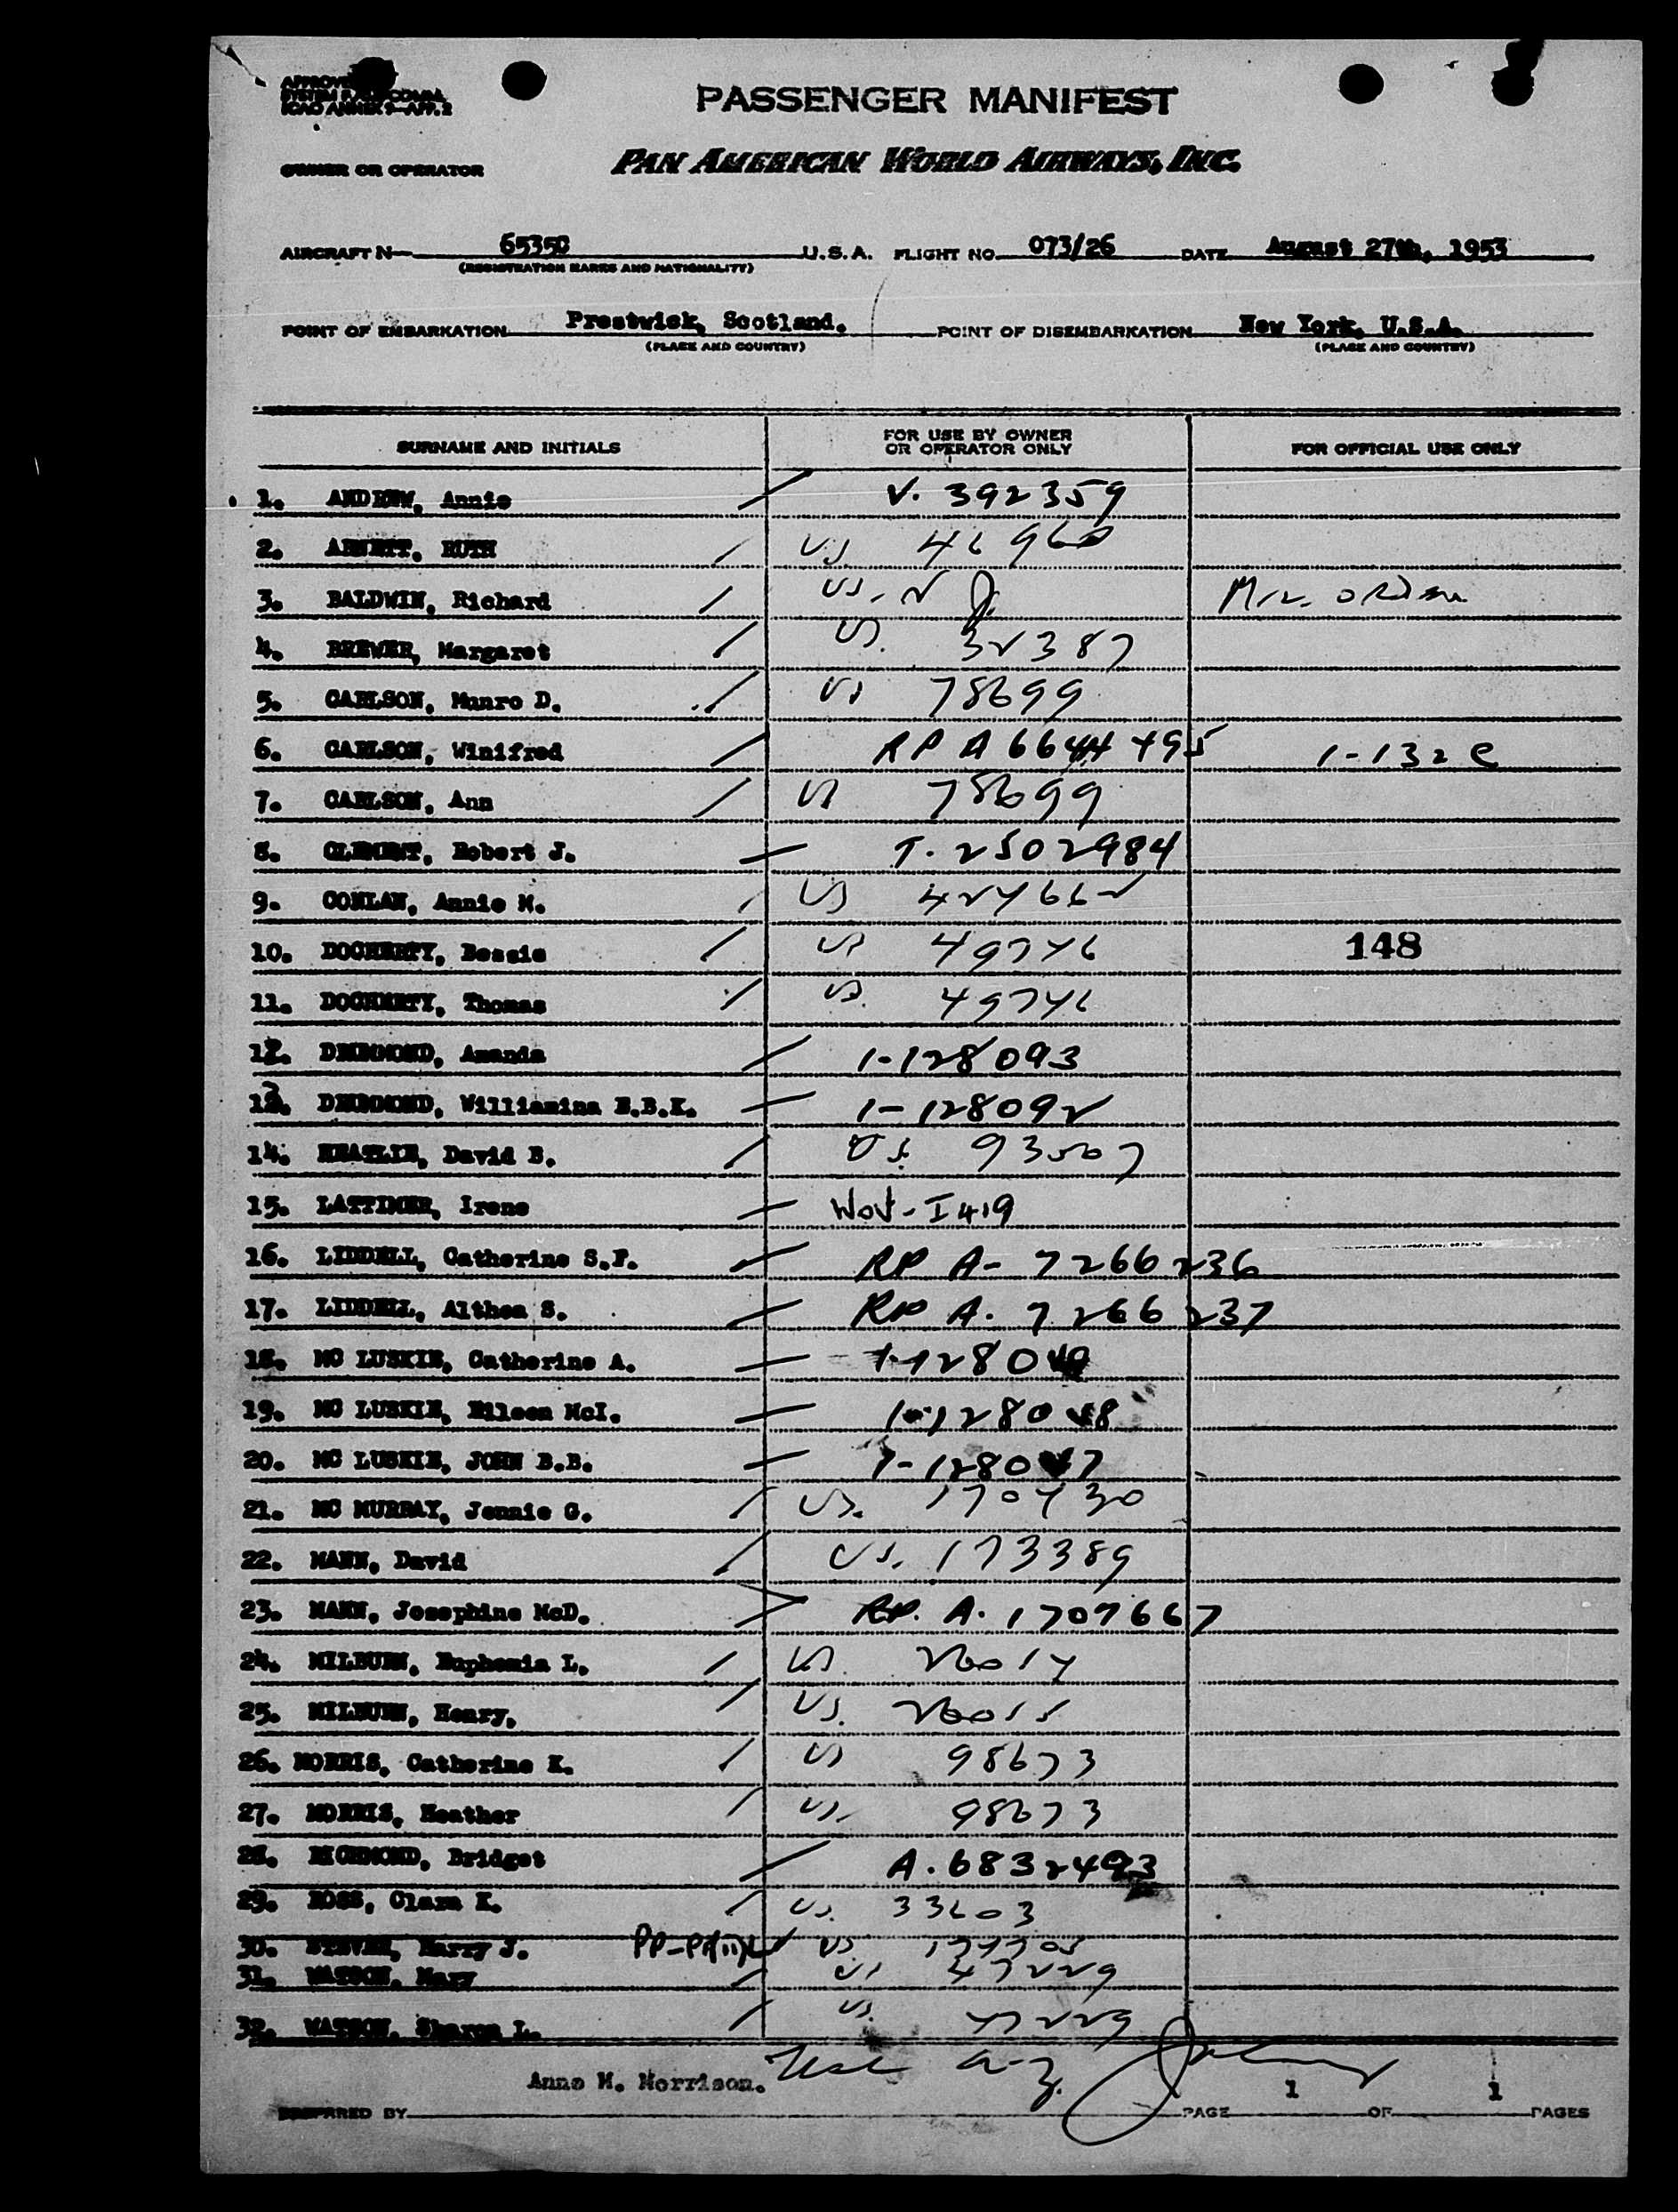 PASSENGER MANIFEST
OWNER OR OPERATOR PAN AMERICAN WORLD AIRWAYS, INC.
AIRCRAFT N 6535C U.S.A. FLIGHT NO. 073/26 DATE August 27th, 1953
(REGISTRATION MARKS AND NATIONALITY)
POINT OF EMBARKATION Prestwick, Scotland. POINT OF DISEMBARKATION New York, U.S.A.
(PLACE AND COUNTRY) (PLACE AND COUNTRY)
SURNAME AND INITIALS FOR USE BY OWNER OR OPERATOR ONLY FOR OFFICIAL USE ONLY
1. ANDREW, Annie V. 392359
2. RUTH US.
3. BALDWIN, Richard US.
4. BREWER, Margaret US. 32387
5. CARLSON, Munro D. US 78699
6. CARLSON, Winifred RP A6644495 1-132 e
7. CARLSON, Ann US 78699
8. CLEMENT, Robert J. T. 2502984
9. CONLAN, Annie M. US 424662
10. DOCHERTY, Bessie US 49746 148
11. DOCHERTY, Thomas US. 49746
12. DRUMMOND, Amanda I-128093
13. DRUMMOND, Williamina E.B.K. I-128092
14. HEATLIE, David B. US. 93567
15. LATTIMER, Irene
16. LIDDELL, Catherine S.F. RP A- 7266236
17. LIDDELL, Althea S. RP A. 7266237
18. MC LUSKIE, Catherine A.
19. MC LUSKIE, Eileen McI.
20. MC LUSKIE, JOHN B.B.
21. MC MURRAY, Jennie G. US. 170430
22. MANN, David US. 173389
23. MANN, Josephine McD. RP. A. 1707667
24. MILBURN, Euphemia L. US. 26014
25. MILBURN, Henry, US.
26. MORRIS, Catherine K. US 98673
27. MORRIS, Heather US. 98673
28. RICHMOND, Bridget A. 6832493
29. ROSS, Clara K. US. 33603
30. Harry J. US.
31. WATSON, Mary US 47229
32. WATSON, Sharon L. US. 47229
Anne M. Morrison.
PREPARED BY PAGE 1 OF 1 PAGES